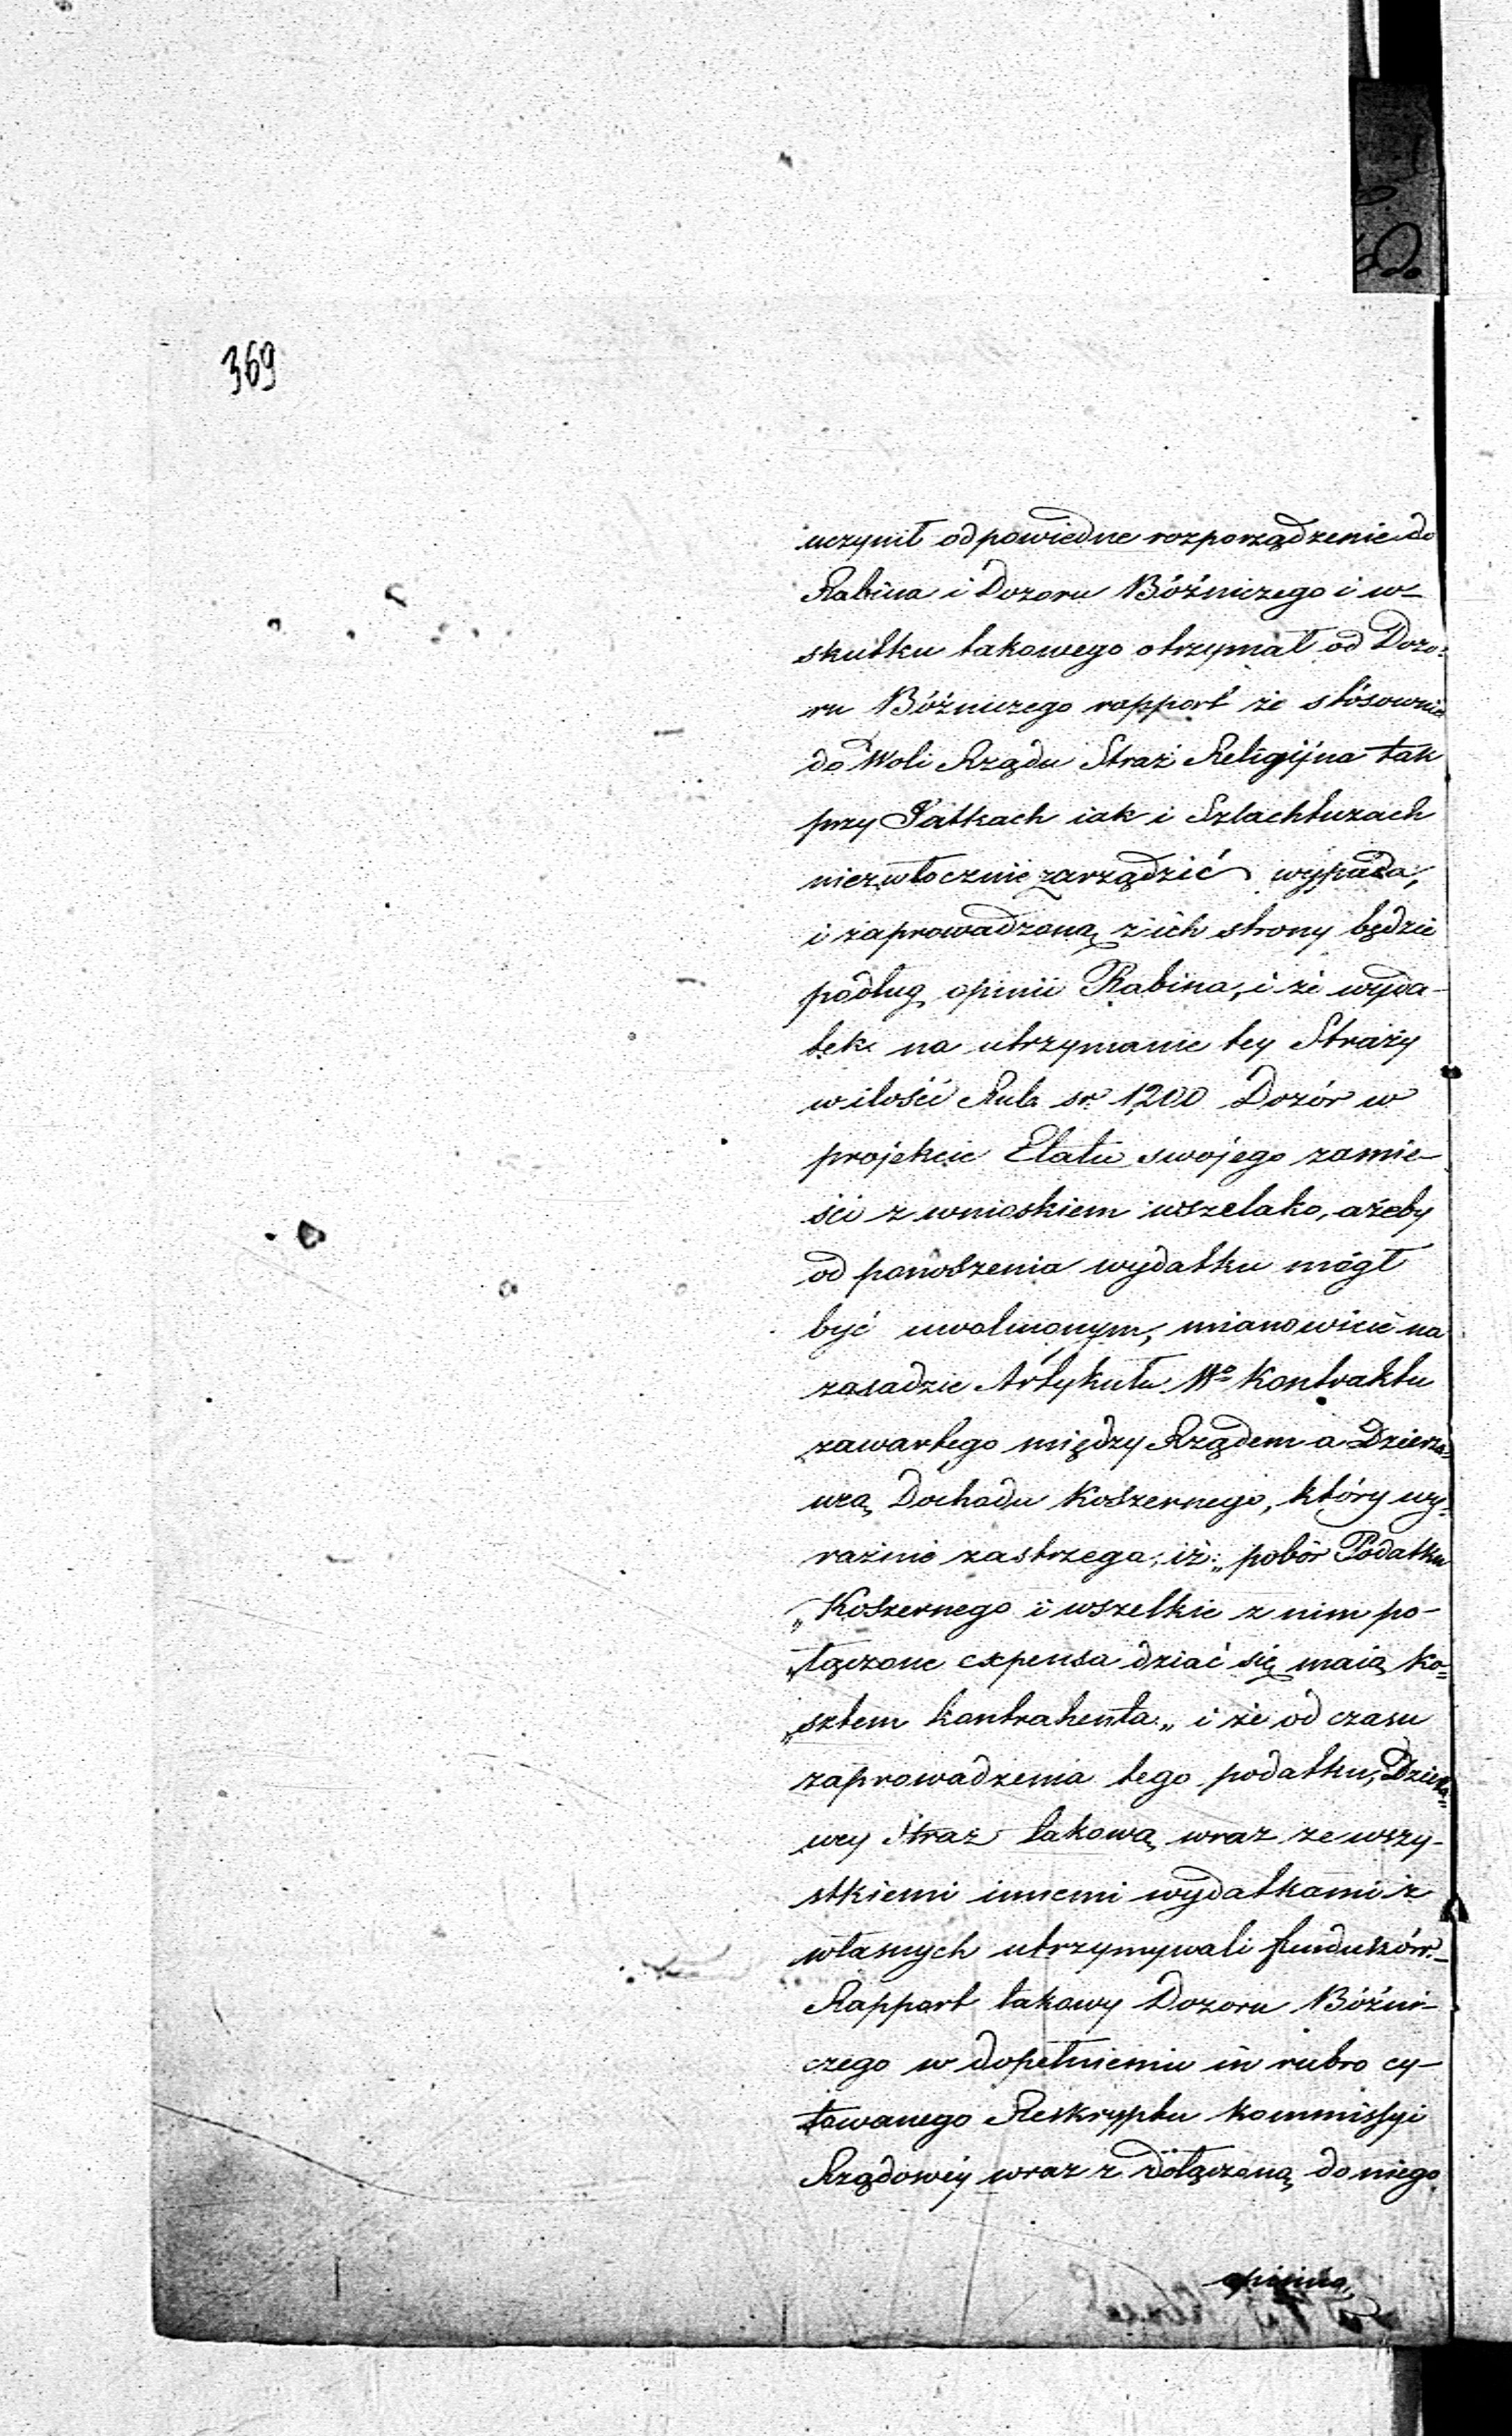 369
uczynił odpowiedne rozporządzenie do
Rabina i Dozoru Bóźniczego i w-
skutku takowego otrzymał od Dozo-
ru Bóźniczego rapport że stósownie
do Woli Rządu Straż Religijna tak
przy Jatkach iak i Szlachtuzach
niezwłocznie zarządzić wypada,
i zaprowadzoną z ich strony będzie
podług opinii Rabina, i że wyda-
tek na utrzymanie tey Straży
w ilości Rub. sr. 1200 Dozór w
projekcie Etatu swojego zamie-
ści z wnioskiem wszelako, ażeby
od ponoszenia wydatku mógł
być uwolnionym, mianowicie na
zasadzie Artykułu Kontraktu
zawartego między Rządem a Dzierża-
wcą Dochodu Koszernego, który wy-
raźnie zastrzega, iż: „pobór Podatku
„Koszernego i wszelkie z nim po-
„łączone expensa dziać się maią ko-
„sztem kontrahenta„ i że od czasu
zaprowadzenia tego podatku, Dzierża-
wcy Straż takową wraz ze wszy-
stkiemi innemi wydatkami z
własnych utrzymywali funduszów.-
Rapport takowy Dozoru Bóźni-
czego w dopełnieniu in rubro cy-
towanego Reskryptu Kommissyi
Rządowéy wraz z dołączoną do niego
opinią